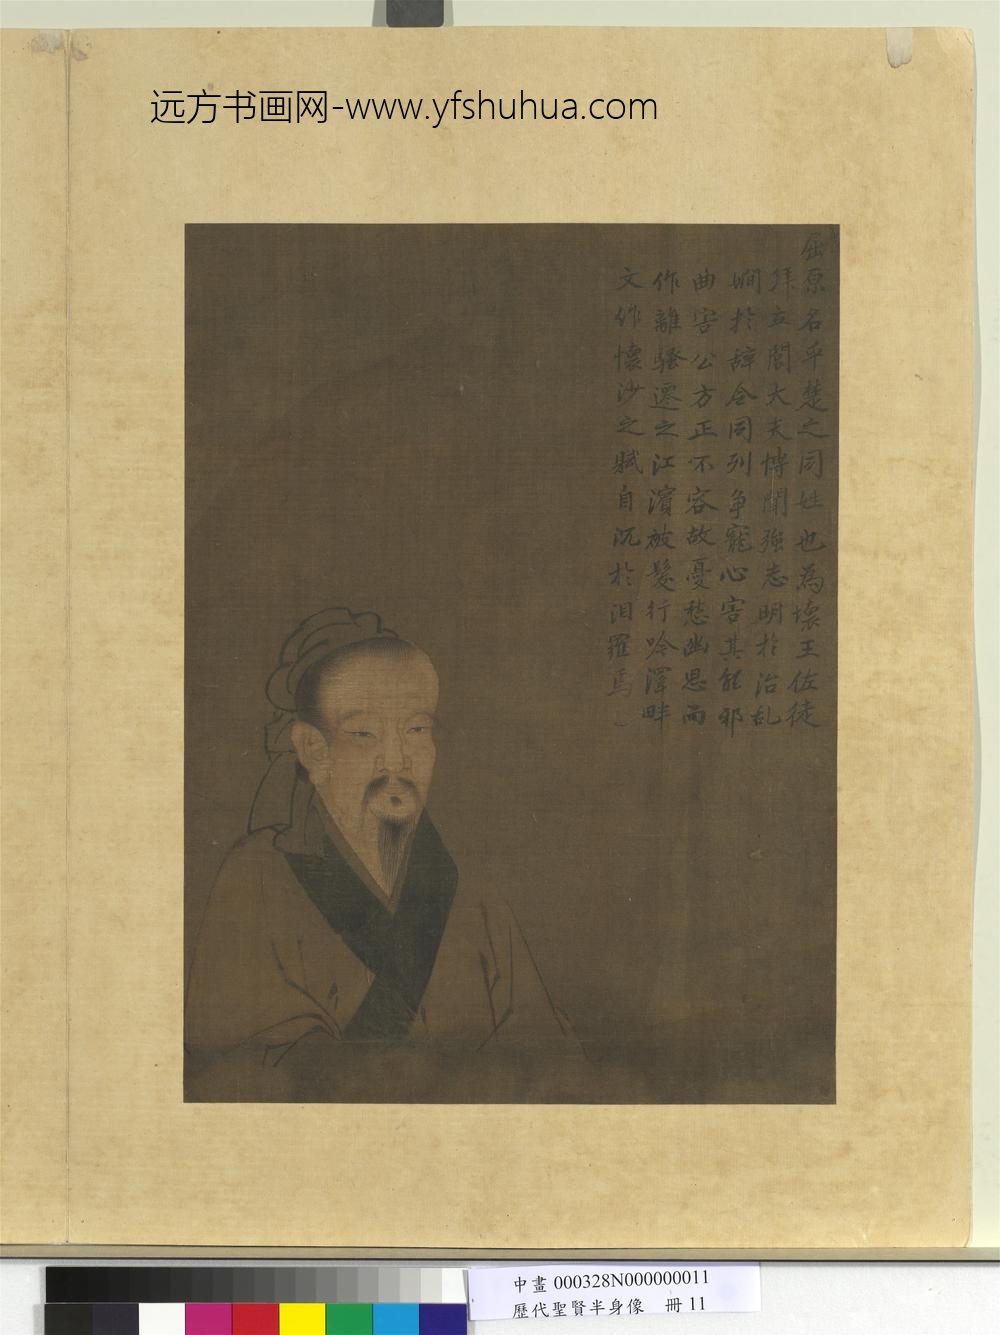 远方书画网-www.yfshuhua.com
屈原名平楚之同姓也為懷王佐徒
拜左閭大夫博聞強志明於治乱
嫺於辞令同列争寵心害其能邪
曲害公方正不容故憂愁幽思而
作離騷遷之江濱被髮行吟澤畔
文作懷沙之賦自沉於汨羅焉
中畫 000328N000000011
歷代聖賢半身像 冊 11